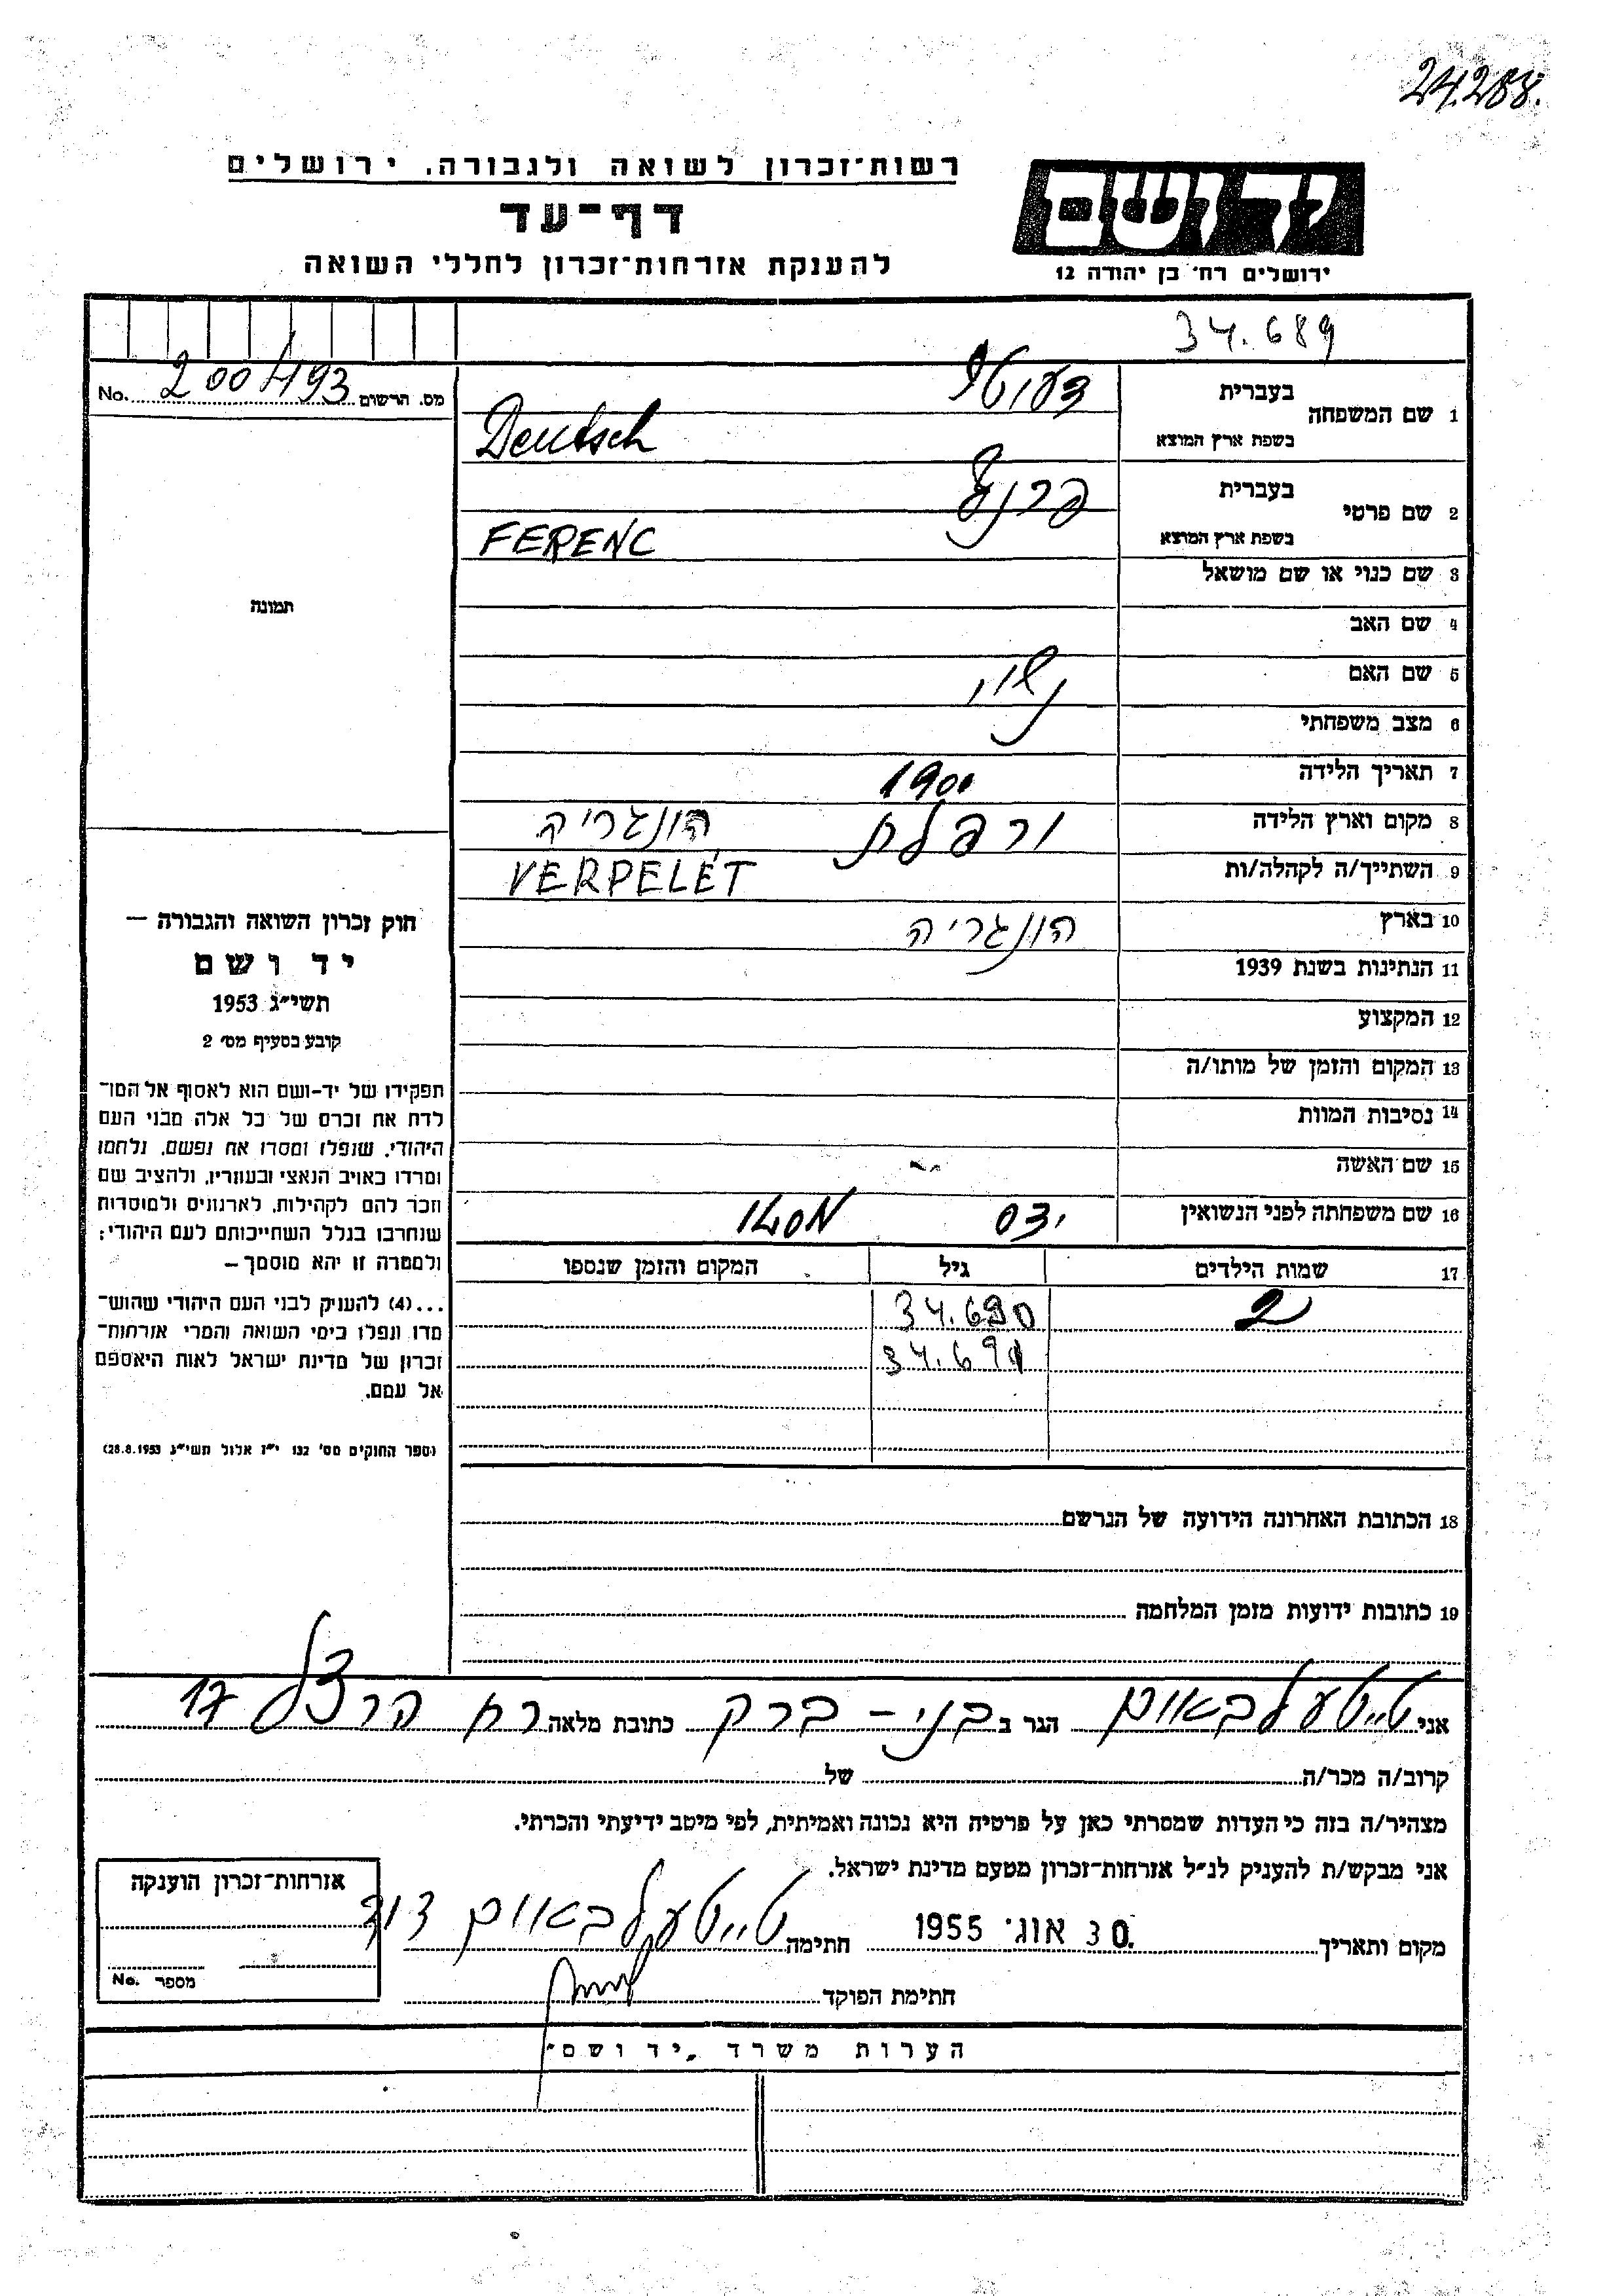 24.288.
רשות־זכרון לשואה ולגבורה, ירושלים
יד ושם
דף־עד
להענקת אזרחות־זכרון לחללי השואה
ירושלים רח׳ בן יהודה 12
34.689
מס. הרשום 200493 No.
1 שם המשפחה
בעברית
בשפת ארץ המוצא Deutsch
2 שם פרטי
בעברית פרנץ
בשפת ארץ המוצא FERENC
3 שם כנוי או שם מושאל
תמונה
4 שם האב
5 שם האם
6 מצב משפחתי נשוי
7 תאריך הלידה 1900
8 מקום וארץ הלידה ורפלת הונגריה
9 השתייך/ה לקהלה/ות VERPELÉT
10 בארץ הונגריה
11 הנתינות בשנת 1939
12 המקצוע
13 המקום והזמן של מותו/ה
14 נסיבות המוות
15 שם האשה
16 שם משפחתה לפני הנשואין
17 שמות הילדים גיל המקום והזמן שנספו
2 34.690
34.691
חוק זכרון השואה והגבורה —
יד ושם
תשי״ג 1953
קובע בסעיף מס׳ 2
תפקידו של יד-ושם הוא לאסוף אל המו־
לדת את זכרם של כל אלה מבני העם
היהודי, שנפלו ומסרו את נפשם, נלחמו
ומרדו באויב הנאצי ובעוזריו, ולהציב שם
וזכר להם לקהילות, לארגונים ולמוסדות
שנחרבו בגלל השתייכותם לעם היהודי;
ולמטרה זו יהא מוסמך—
...(4) להעניק לבני העם היהודי שהוש־
מדו ונפלו בימי השואה והמרי אזרחות־
זכרון של מדינת ישראל לאות היאספם
אל עמם.
(ספר החוקים מס׳ 132 י״ז אלול תשי״ג 28.8.1953)
18 הכתובת האחרונה הידועה של הנרשם
19 כתובות ידועות מזמן המלחמה
אני טייטעלבאום הגר ב בני-ברק כתובת מלאה רח הרצל 17
קרוב/ה מכר/ה של
מצהיר/ה בזה כי העדות שמסרתי כאן על פרטיה היא נכונה ואמיתית, לפי מיטב ידיעתי והכרתי.
אני מבקש/ת להעניק לנ״ל אזרחות־זכרון מטעם מדינת ישראל.
מקום ותאריך 30 אוג׳ 1955 חתימה טייטעלבאום דוד
חתימת הפוקד
אזרחות־זכרון הוענקה
מספר No.
הערות משרד „יד ושם״